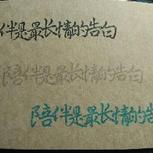 伴是最长情的告白
陪伴是最长情的告白
陪伴是最长情的告